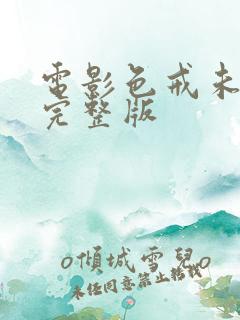 電影色戒未
完整版
o傾城雪兒o
未任同意禁止转载